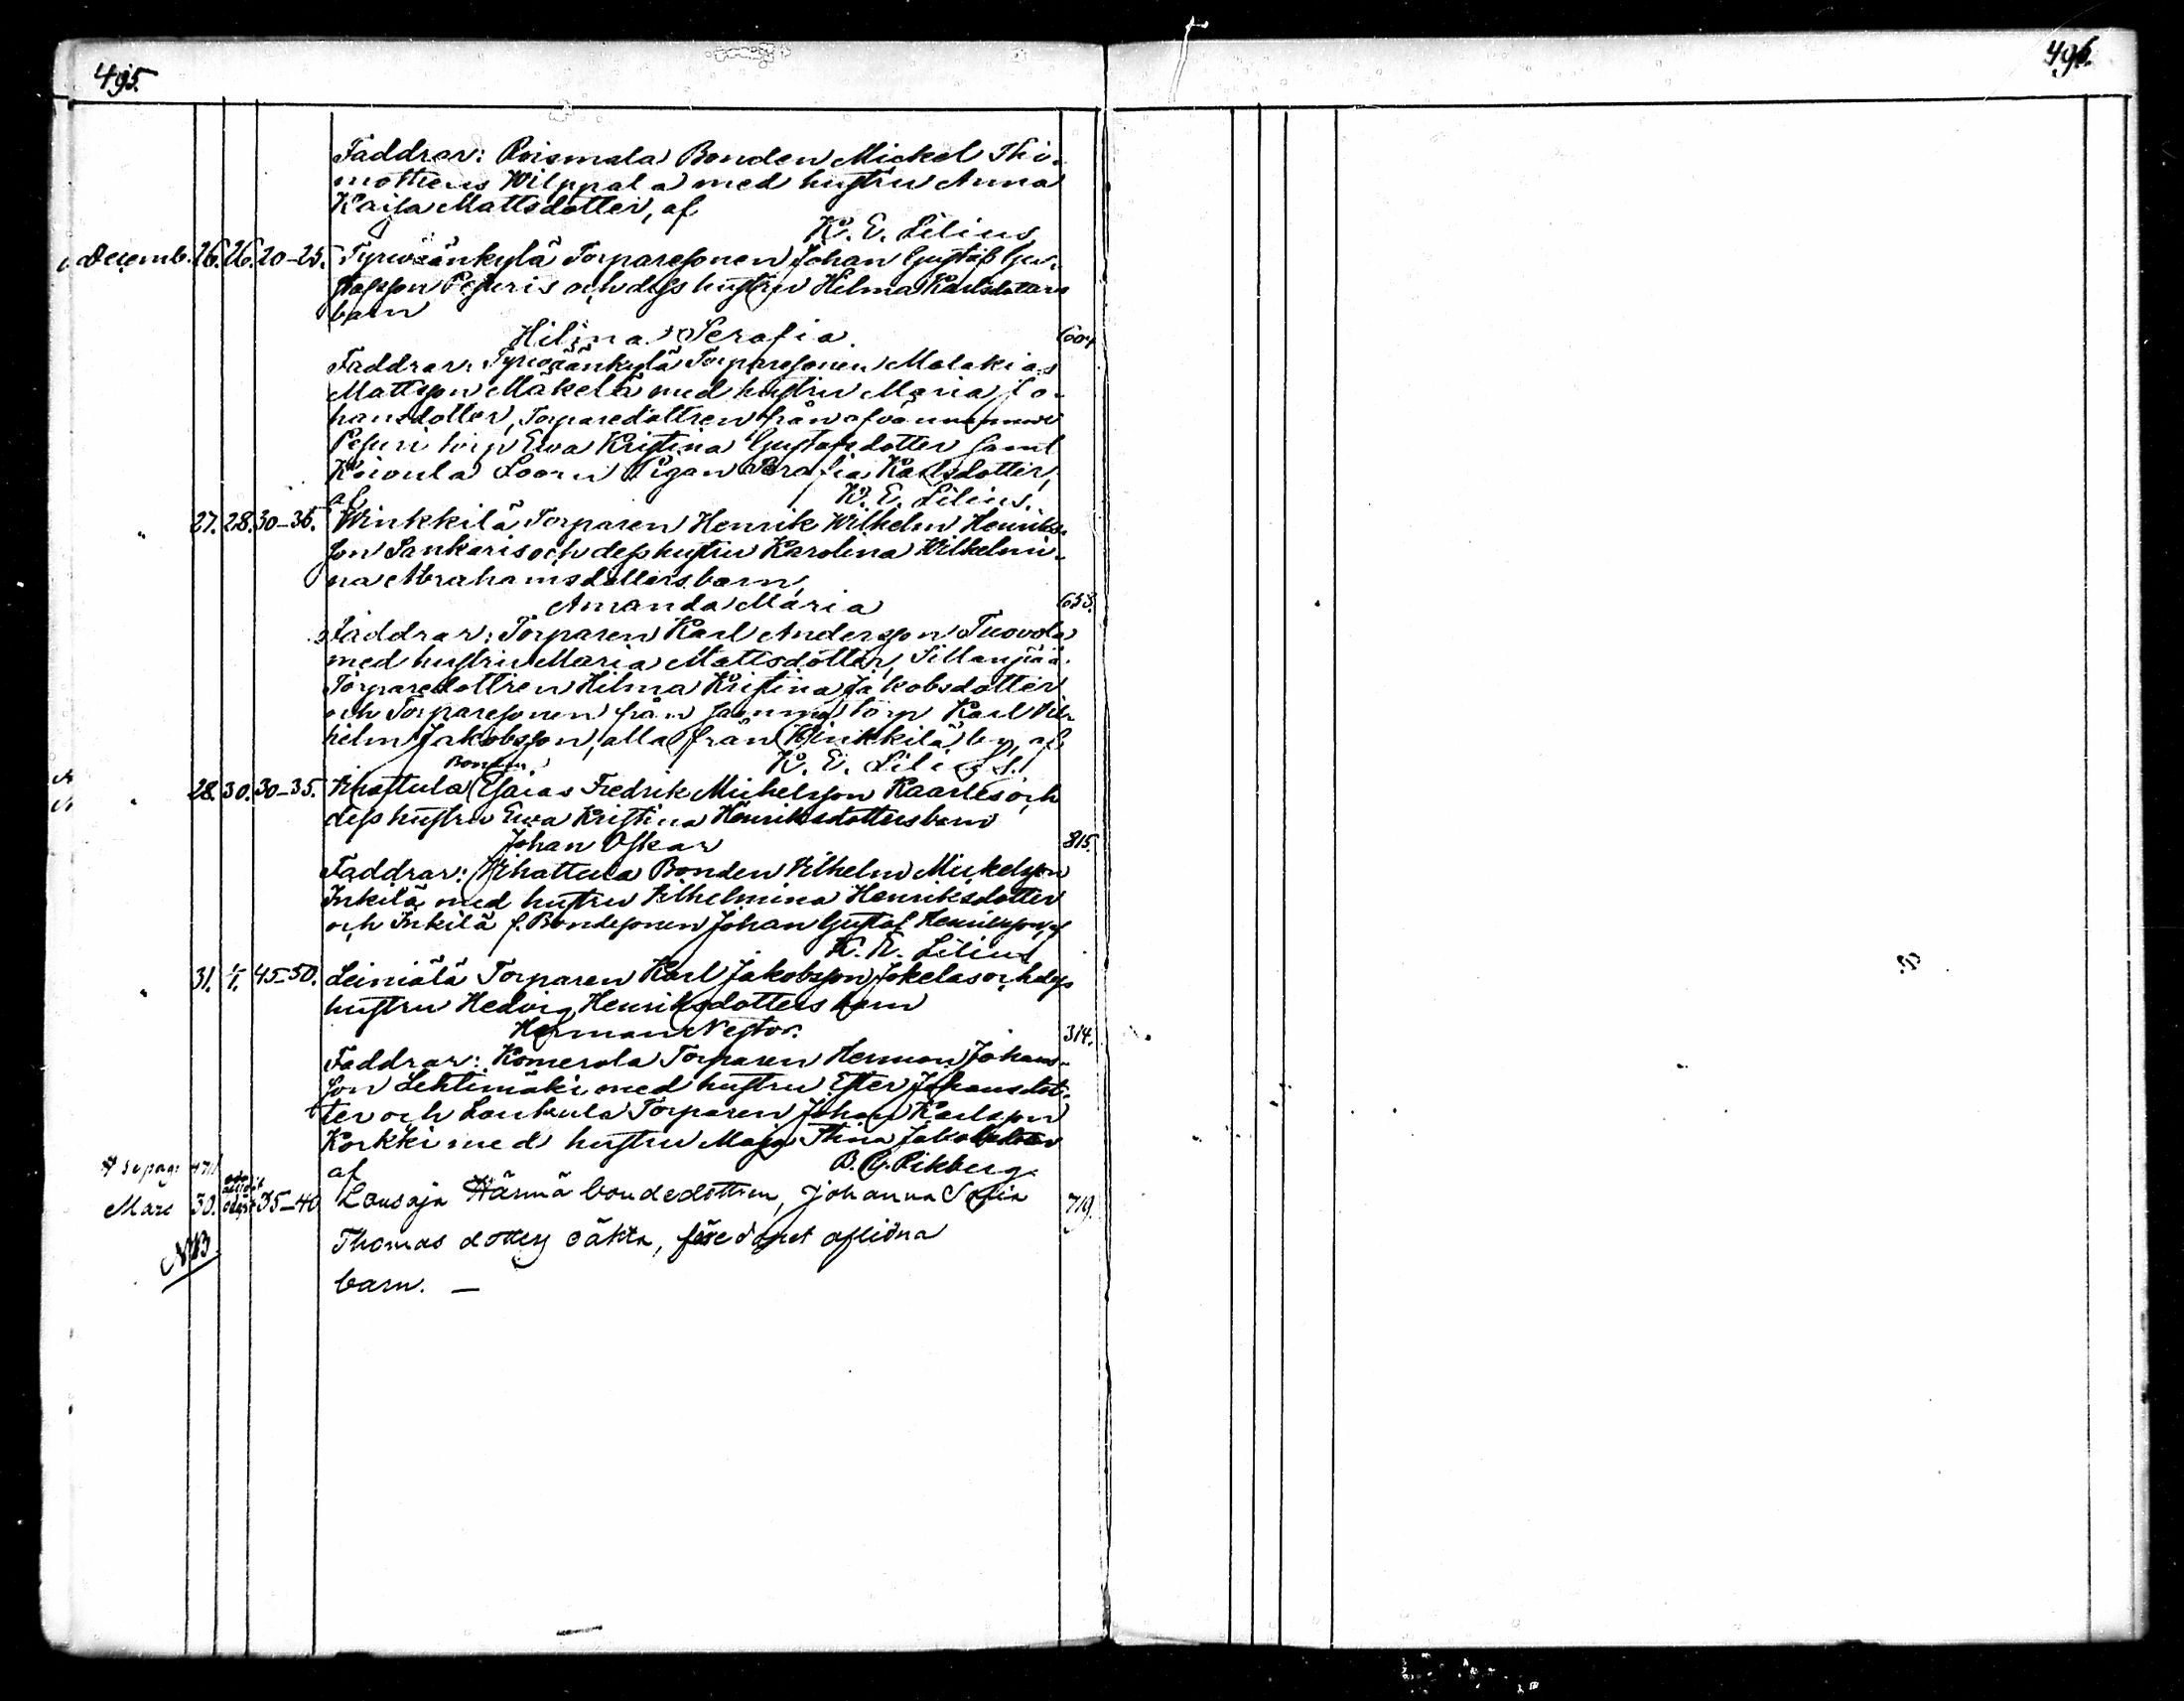 495.
496.
Faddrar: Roismala Bonden Mickel Thi-
motheus Wilppala med hustru Anna
Kajsa Mattsdotter, af
K. E. Lilius
Decemb. 26. 26. 20-25. Tyrväänkylä Torparesonen Johan Gustaf Gu-
stafsson Pesuris och dess hustru Hilma Karlsdotters
barn
Hilma Serafia. 604
Faddrar: Tyrväänkylä Torparesonen Malakias
Mattsson Mäkelä med hustru Maria Jo-
hansdotter, Torparedottren från
Pesuri torp Ewa Kristina Gustafsdotter samt
Koivula Pigan Serafia Karlsdotter,
af K. E. Lilius.
" 27. 28. 30-35. Winkkilä Torparen Henrik Wilhelm Henriks-
son Sankaris och dess hustru Karolina Wilhelmi-
na Abrahamsdotters barn,
Amanda Maria 653.
Faddrar: Torparen Karl Andersson Tuovola
med hustru Maria Mattsdotter, Sillanpää
Torparedottren Hilma Kristina Jakobsdotter
och Torparesonen från samma torp Karl Vil-
helm Jakobsson, alla från Winkkilä by, af
K. E. Lilius.
Bonden
" 28. 30. 30-35. Vihattula Esaias Fredrik Michelsson Kaarles och
dess hustru Ewa Kristina Henriksdotters barn
Johan Oskar 815.
Faddrar: Vihattula Bonden Vilhelm Mickelsson
Inkilä med hustru Vilhelmina Henriksdotter
och Inkilä f. Bondesonen Johan Gustaf Henriksson, af
K. E. Lilius
" 31. 1/1. 45-50. Leiniälä Torparen Karl Jakobsson Jokelas och dess
hustru Hedvig Henriksdotters barn
Herman Nestor. 314.
Faddrar: Komerola Torparen Herman Johans-
son Lehtimäki med hustru Ester Johansdot-
ter och Laukula Torparen Johan Karlsson
Korkki med hustru Maja Stina Jakobsdotter
af B. G. Rikberg.
Mars 30. 35-40. Lousaja Härmä bondedottren, Johanna Sofia 719.
Thomas dotters oäkta, före dopet aflidna
NB
barn. —